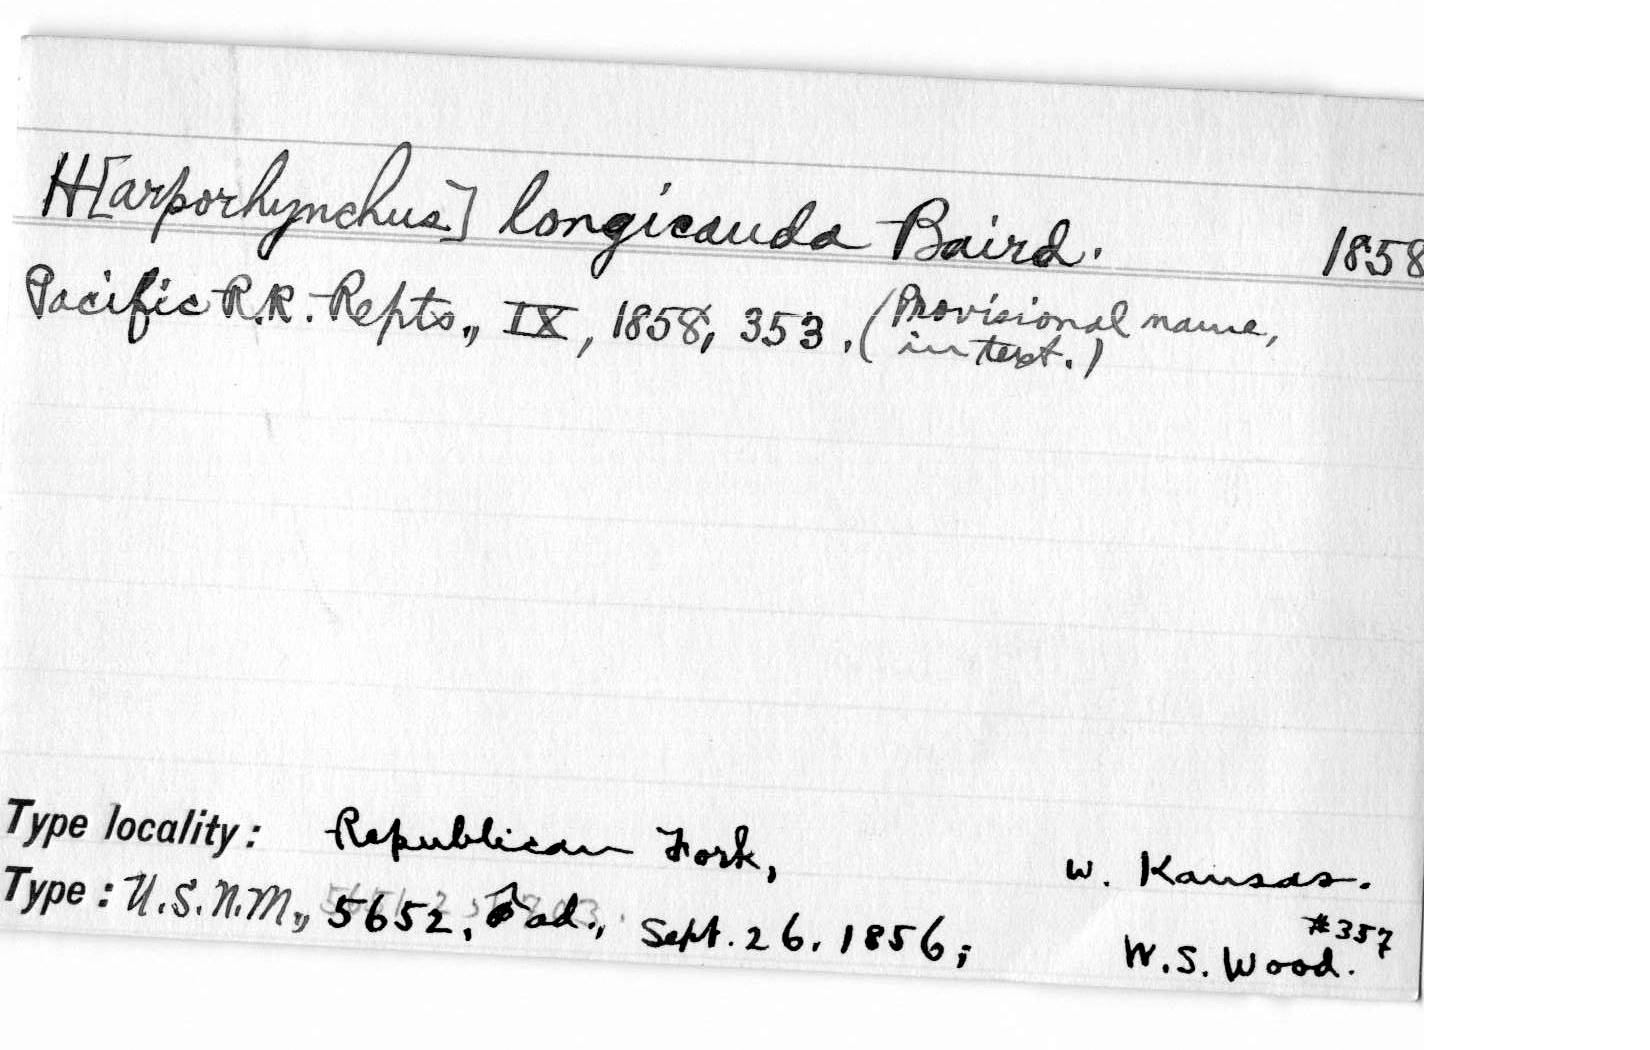 H[arporhynchus] longicauda Baird. 1858
Pacific R.R. Repts., IX, 1858, 353. (Provisional name,
in text.)
Type locality: Republican Fork, w. Kansas.
Type: U.S.N.M., 5652, ♂ ad., Sept. 26. 1856; #357
W.S. Wood.